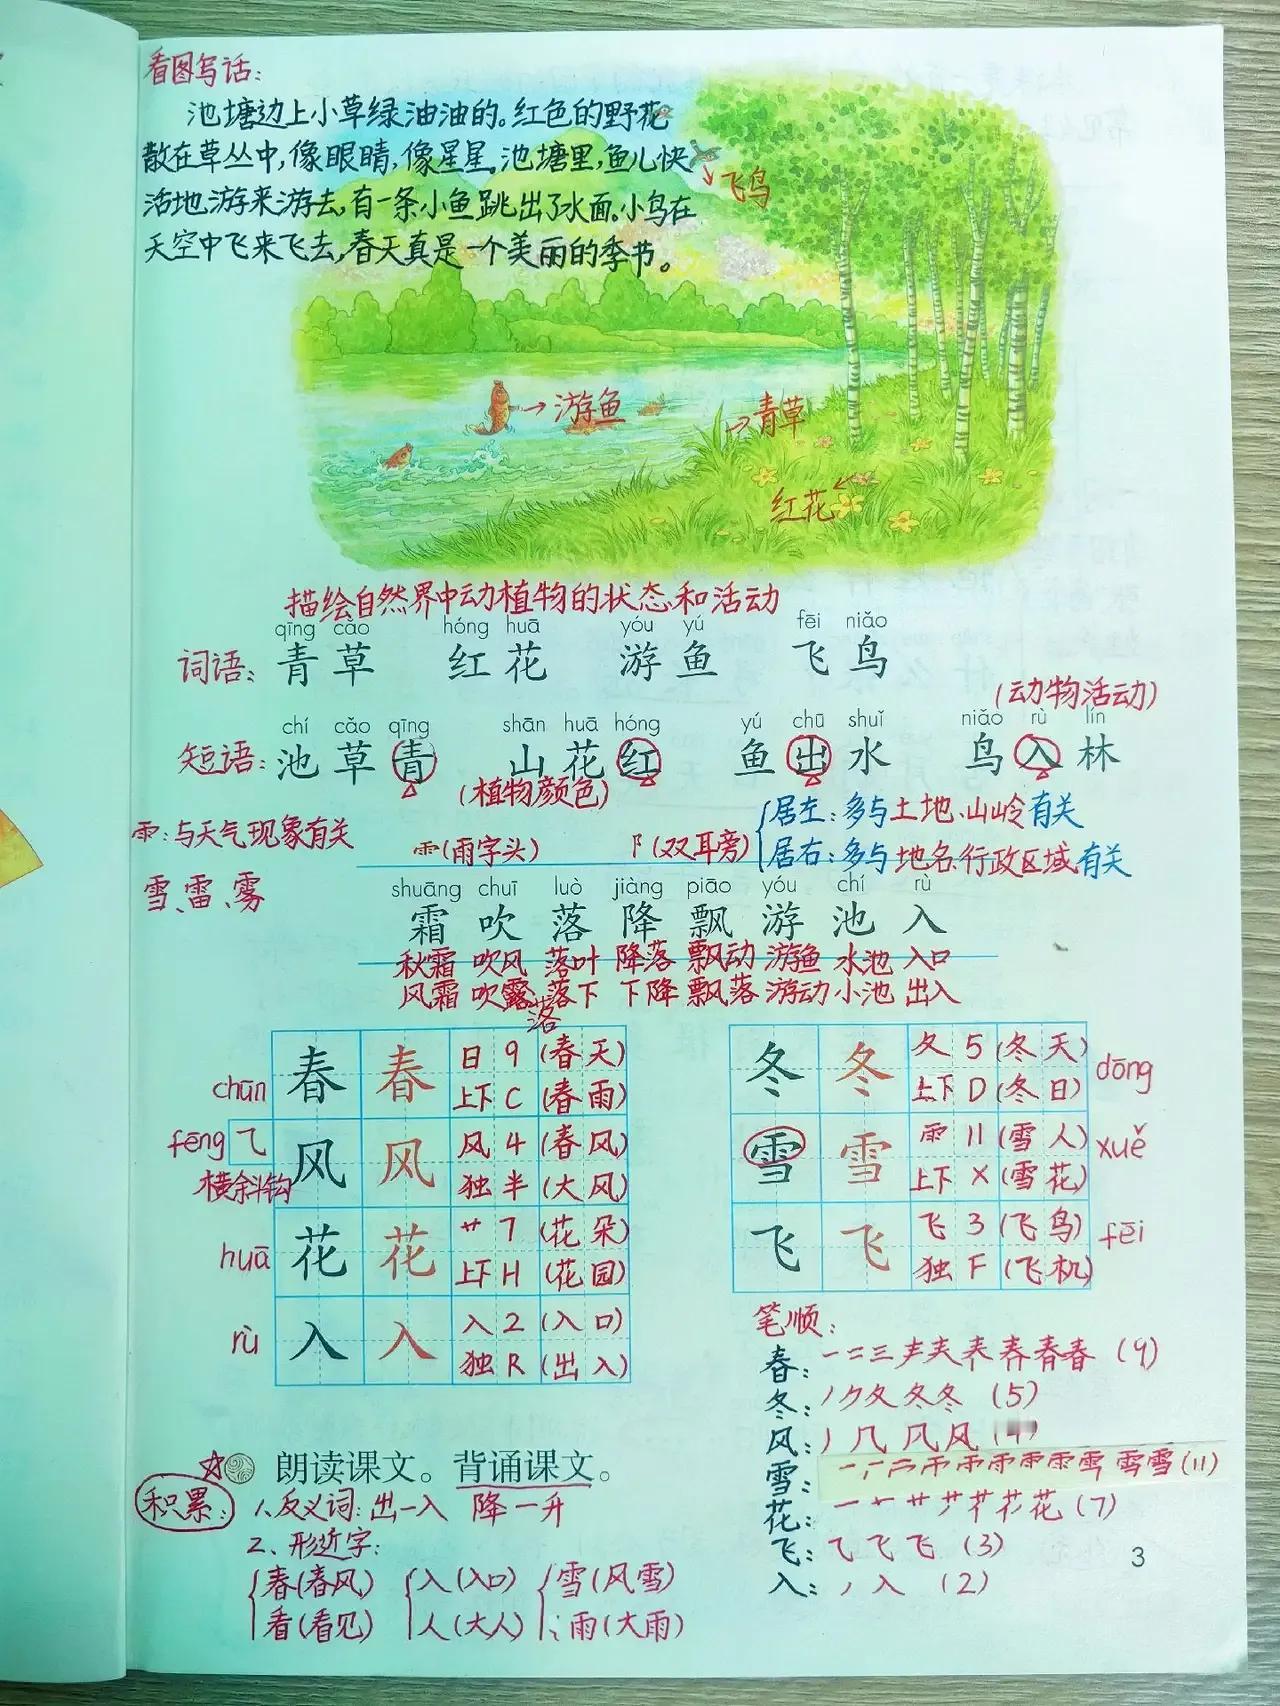 看图写话:
池塘边上小草绿油油的。红色的野花
散在草丛中,像眼睛,像星星。池塘里,鱼儿快
活地游来游去,有一条小鱼跳出了水面。小鸟在
天空中飞来飞去,春天真是一个美丽的季节。
飞鸟
游鱼
青草
红花
描绘自然界中动植物的状态和活动
qīng cǎo hóng huā yóu yú fēi niǎo
词语: 青草 红花 游鱼 飞鸟
(动物活动)
chí cǎo qīng shān huā hóng yú chū shuǐ niǎo rù lín
短语: 池草青 山花红 鱼出水 鸟入林
(植物颜色)
⻗:与天气现象有关
雪、雷、雾
⻗(雨字头) 阝(双耳旁)
居左:多与土地、山岭有关
居右:多与地名、行政区域有关
shuāng chuī luò jiàng piāo yóu chí rù
霜 吹 落 降 飘 游 池 入
秋霜 吹风 落叶 降落 飘动 游鱼 水池 入口
风霜 吹落 落下 下降 飘落 游动 小池 出入
chūn 春 春 日 9 (春天)
上下 C (春雨)
fēng ⺄ 风 风 风 4 (春风)
横斜钩 独 半 (大风)
huā 花 花 艹 7 (花朵)
上下 H (花园)
rù 入 入 入 2 (入口)
独 R (出入)
冬 冬 夂 5 (冬天) dōng
上下 D (冬日)
雪 雪 ⻗ 11 (雪人) xuě
上下 X (雪花)
飞 飞 飞 3 (飞鸟) fēi
独 F (飞机)
笔顺:
春: (9)
冬: (5)
风: (4)
雪: (11)
花: (7)
飞: (3)
入: (2)
朗读课文。背诵课文。
积累: 1、反义词:出—入 降—升
2、形近字:
春(春风) 入(入口) 雪(风雪)
看(看见) 人(大人) 雨(大雨)
3